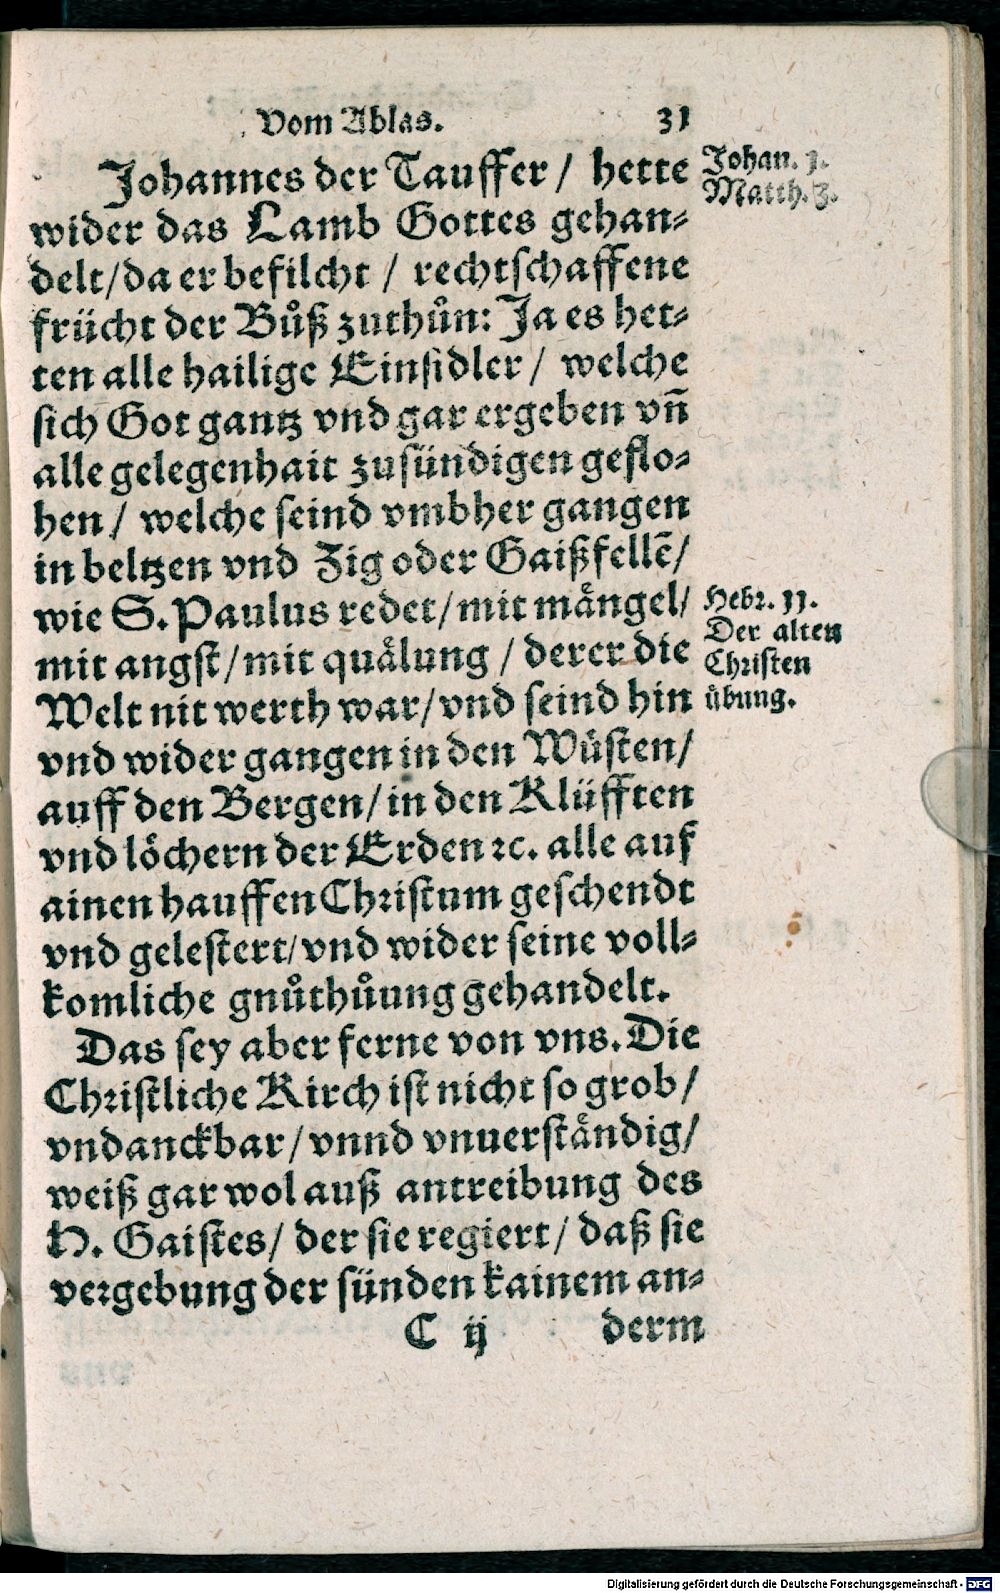 Vom Ablas. 31
Johannes der Tauffer / hette
wider das Lamb Gottes gehan⸗
delt/da er befilcht / rechtschaffene
frücht der Bůß zuthůn: Ja es het⸗
ten alle hailige Einsidler / welche
sich Got gantz vnd gar ergeben vn̄
alle gelegenhait zusündigen geflo⸗
hen / welche seind vmbher gangen
in beltzen vnd Zig oder Gaißfellē/
wie S. Paulus redet/mit mängel/
mit angst/mit quälung / derer die
Welt nit werth war/vnd seind hin
vnd wider gangen in den Wüsten/
auff den Bergen/in den Klüfften
vnd löchern der Erden ꝛc. alle auf
ainen hauffen Christum geschendt
vnd gelestert/vnd wider seine voll⸗
komliche gnůthůung gehandelt.
Das sey aber ferne von vns. Die
Christliche Kirch ist nicht so grob/
vndanckbar/vnnd vnuerständig/
weiß gar wol auß antreibung des
H. Gaistes/ der sie regiert/ daß sie
vergebung der sünden kainem an⸗
C ij derm
Johan. 1.
Matth. 3.
Hebr. 11.
Der alten
Christen
übung.
Digitalisierung gefördert durch die Deutsche Forschungsgemeinschaft - DFG